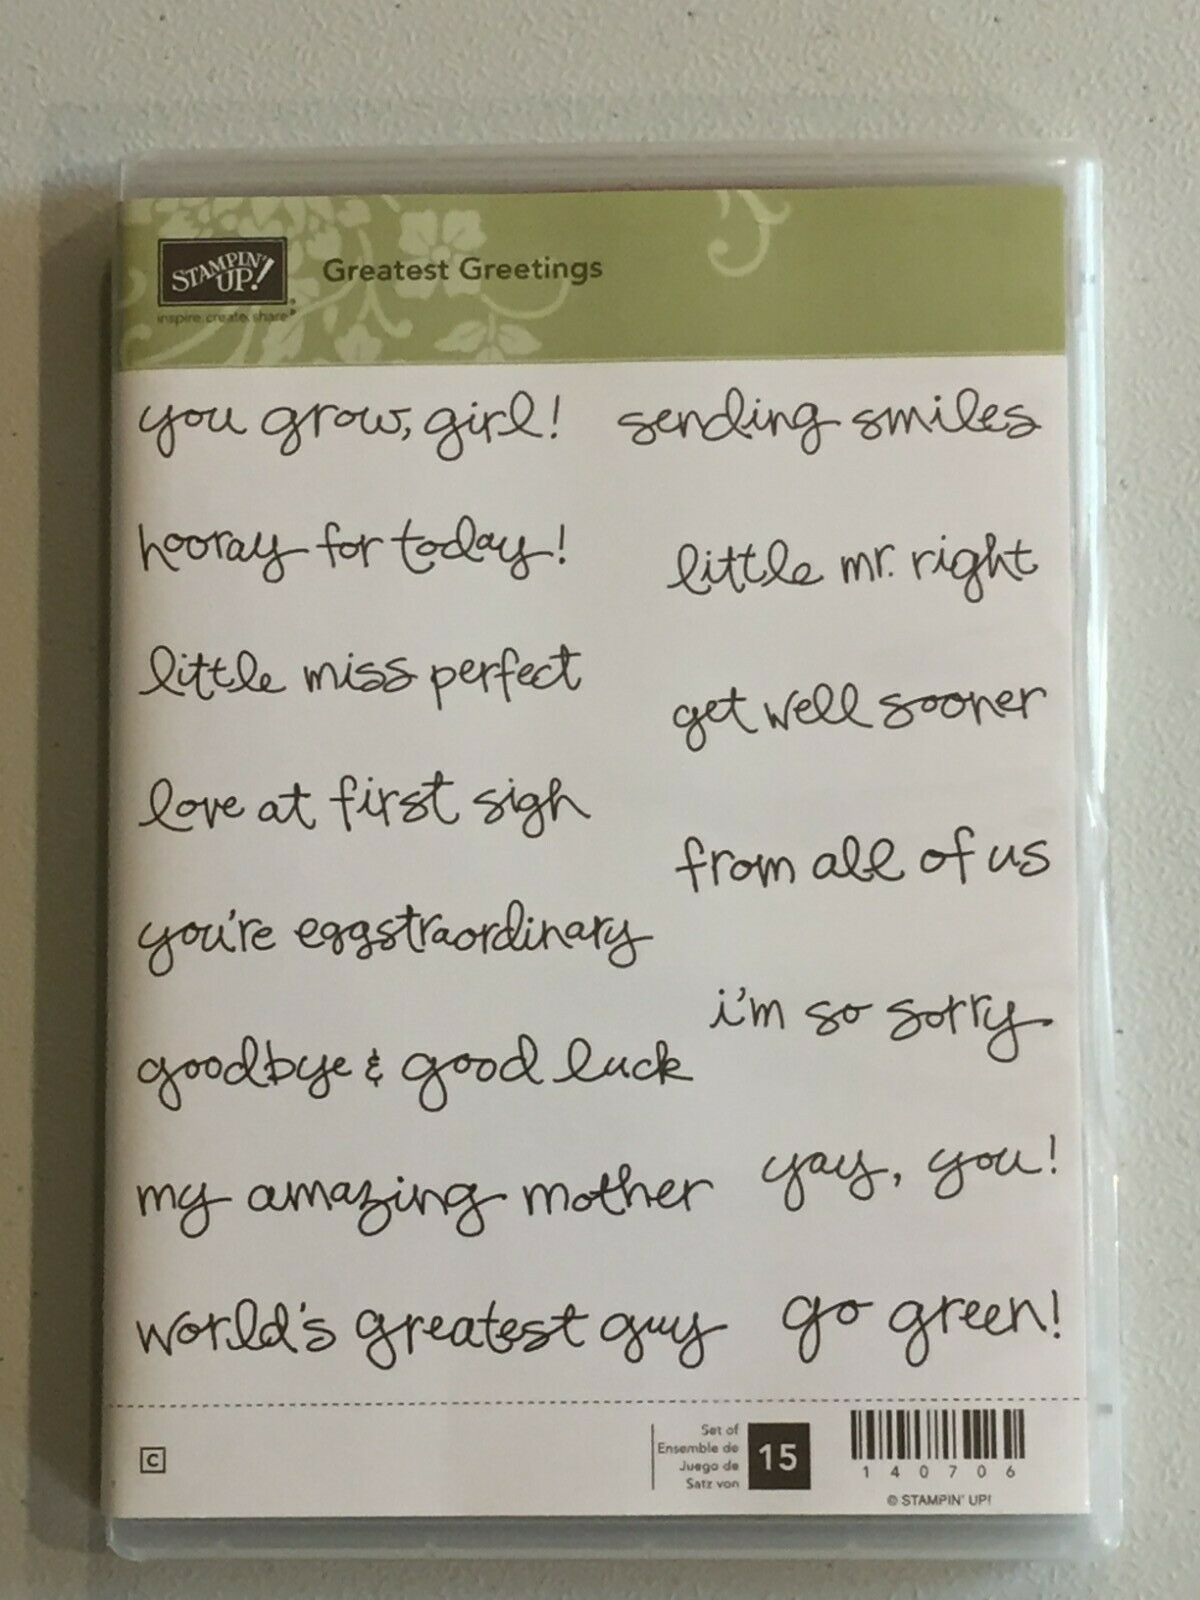 STAMPIN' UP!®
inspire.create.share®
Greatest Greetings
you grow, girl!
sending smiles
hooray for today!
little mr. right
little miss perfect
get well sooner
love at first sigh
from all of us
you're eggstraordinary
i'm so sorry
goodbye & good luck
yay, you!
my amazing mother
go green!
world's greatest guy
C
Set of
Ensemble de
Juego de
Satz von
15
140706
© STAMPIN' UP!